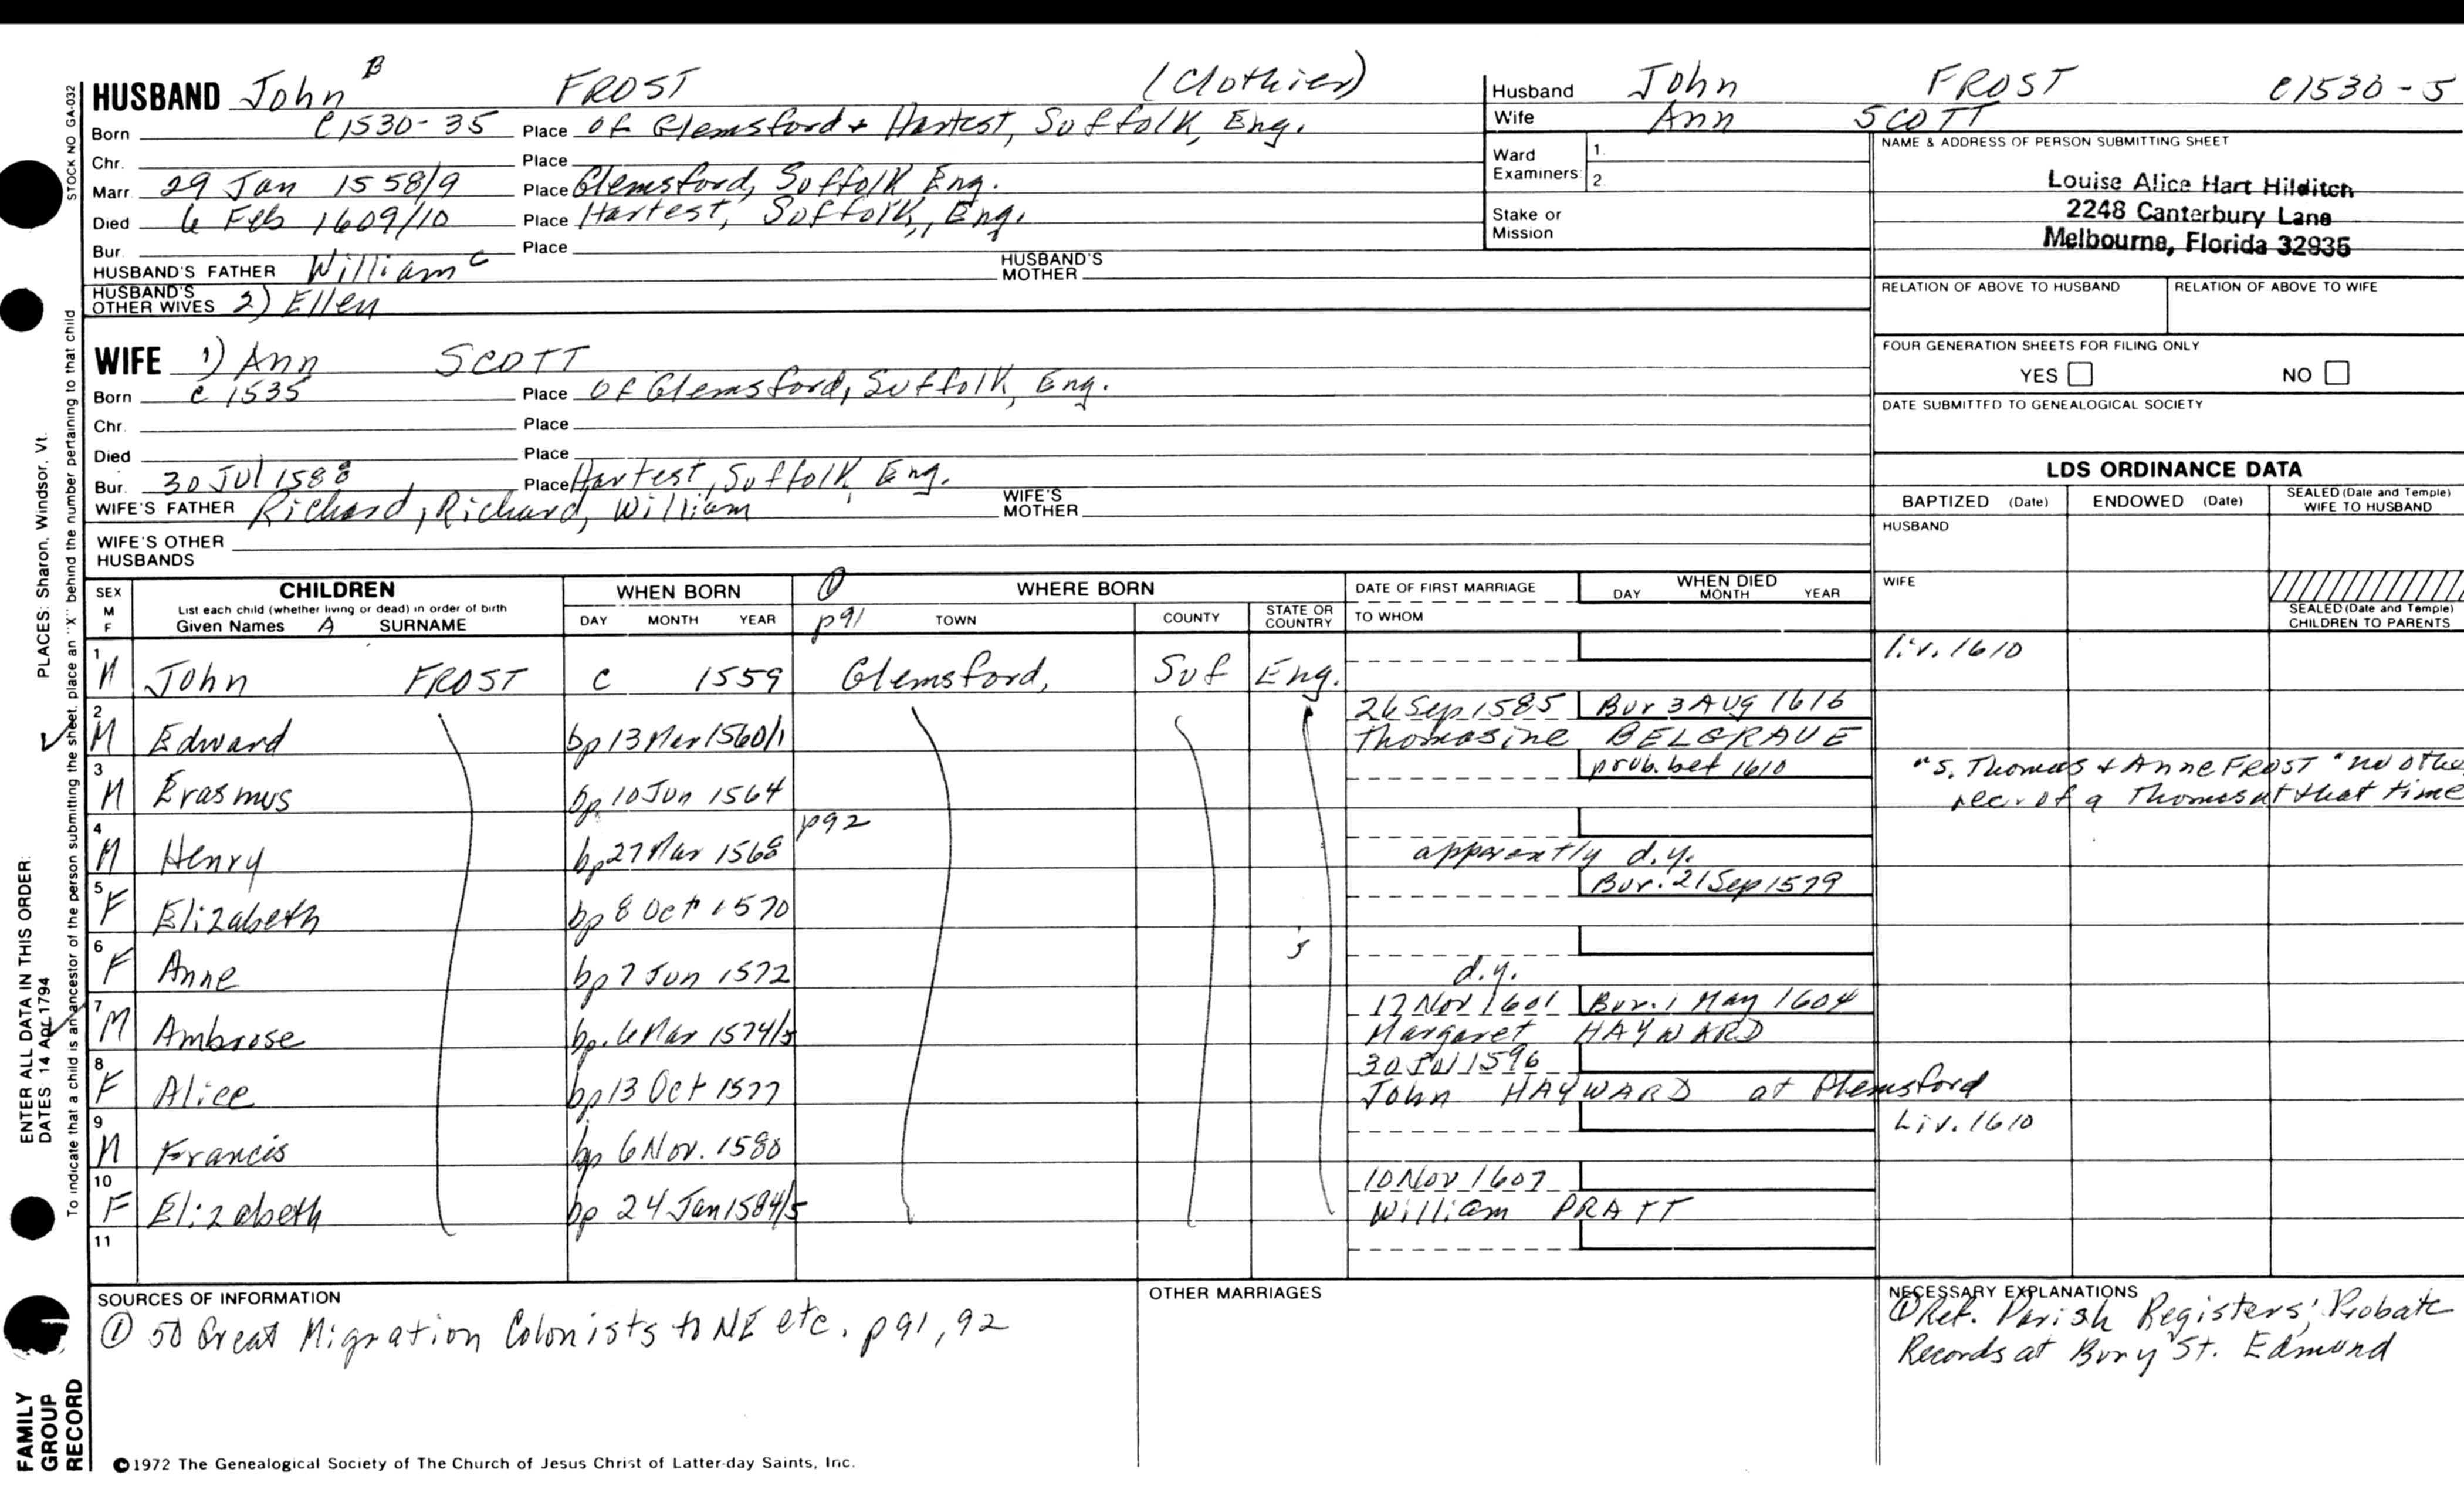 HUSBAND John B FROST (Clothier)
Born c1530-35 Place of Glemsford & Hartest, Suffolk, Eng.
Chr. Place
Marr 29 Jan 1558/9 Place Glemsford, Suffolk Eng.
Died 6 Feb 1609/10 Place Hartest, Suffolk, Eng.
Bur. Place
HUSBAND'S FATHER William C HUSBAND'S MOTHER
HUSBAND'S OTHER WIVES 2) Ellen
Husband John FROST c1530-5
Wife Ann SCOTT
Ward Examiners 1. 2.
Stake or Mission
NAME & ADDRESS OF PERSON SUBMITTING SHEET
Louise Alice Hart Hilditch
2248 Canterbury Lane
Melbourne, Florida 32935
RELATION OF ABOVE TO HUSBAND RELATION OF ABOVE TO WIFE
FOUR GENERATION SHEETS FOR FILING ONLY
YES NO
DATE SUBMITTED TO GENEALOGICAL SOCIETY
WIFE 1) Ann SCOTT
Born c 1535 Place of Glemsford, Suffolk, Eng.
Chr. Place
Died Place
Bur. 30 Jul 1588 Place Hartest, Suffolk, Eng.
WIFE'S FATHER Richard, Richard, William WIFE'S MOTHER
WIFE'S OTHER HUSBANDS
LDS ORDINANCE DATA
BAPTIZED (Date) ENDOWED (Date) SEALED (Date and Temple) WIFE TO HUSBAND
HUSBAND
WIFE
SEALED (Date and Temple) CHILDREN TO PARENTS
SEX M F CHILDREN WHEN BORN ① WHERE BORN DATE OF FIRST MARRIAGE WHEN DIED
List each child (whether living or dead) in order of birth
Given Names A SURNAME DAY MONTH YEAR p91 TOWN COUNTY STATE OR COUNTRY TO WHOM DAY MONTH YEAR
1 M John FROST c 1559 Glemsford, Suf Eng. liv. 1610
2 M Edward bp 13 Mar 1560/1 26 Sep 1585 Bur 3 Aug 1616
Thomasine BELGRAVE
3 M Erasmus bp 10 Jun 1564 prob. bef 1610 "s. Thomas & Anne FROST" no othe
rec. of a Thomas at that time
4 M Henry bp 27 Mar 1568 p92 apparently d.y.
5 F Elizabeth bp 8 Oct 1570 Bur. 21 Sep 1579
6 F Anne bp 7 Jun 1572 d.y.
7 M Ambrose bp. 6 Mar 1574/5 17 Nov 1601 Bur. 1 May 1604
Margaret HAYWARD
8 F Alice bp 13 Oct 1577 30 Jul 1596
John HAYWARD at Glemsford
9 M Francis bp 6 Nov. 1580 Liv. 1610
10 F Elizabeth bp 24 Jan 1584/5 10 Nov 1607
William PRATT
11
SOURCES OF INFORMATION
① 50 Great Migration Colonists to NE etc. p91, 92
OTHER MARRIAGES
NECESSARY EXPLANATIONS
① Ref. Parish Registers; Probate
Records at Bury St. Edmund
©1972 The Genealogical Society of The Church of Jesus Christ of Latter-day Saints, Inc.
STOCK NO GA-032
To indicate that a child is an ancestor of the person submitting the sheet, place an "X" behind the number pertaining to that child
PLACES: Sharon, Windsor, Vt.
ENTER ALL DATA IN THIS ORDER:
DATES 14 Apr 1794
FAMILY GROUP RECORD